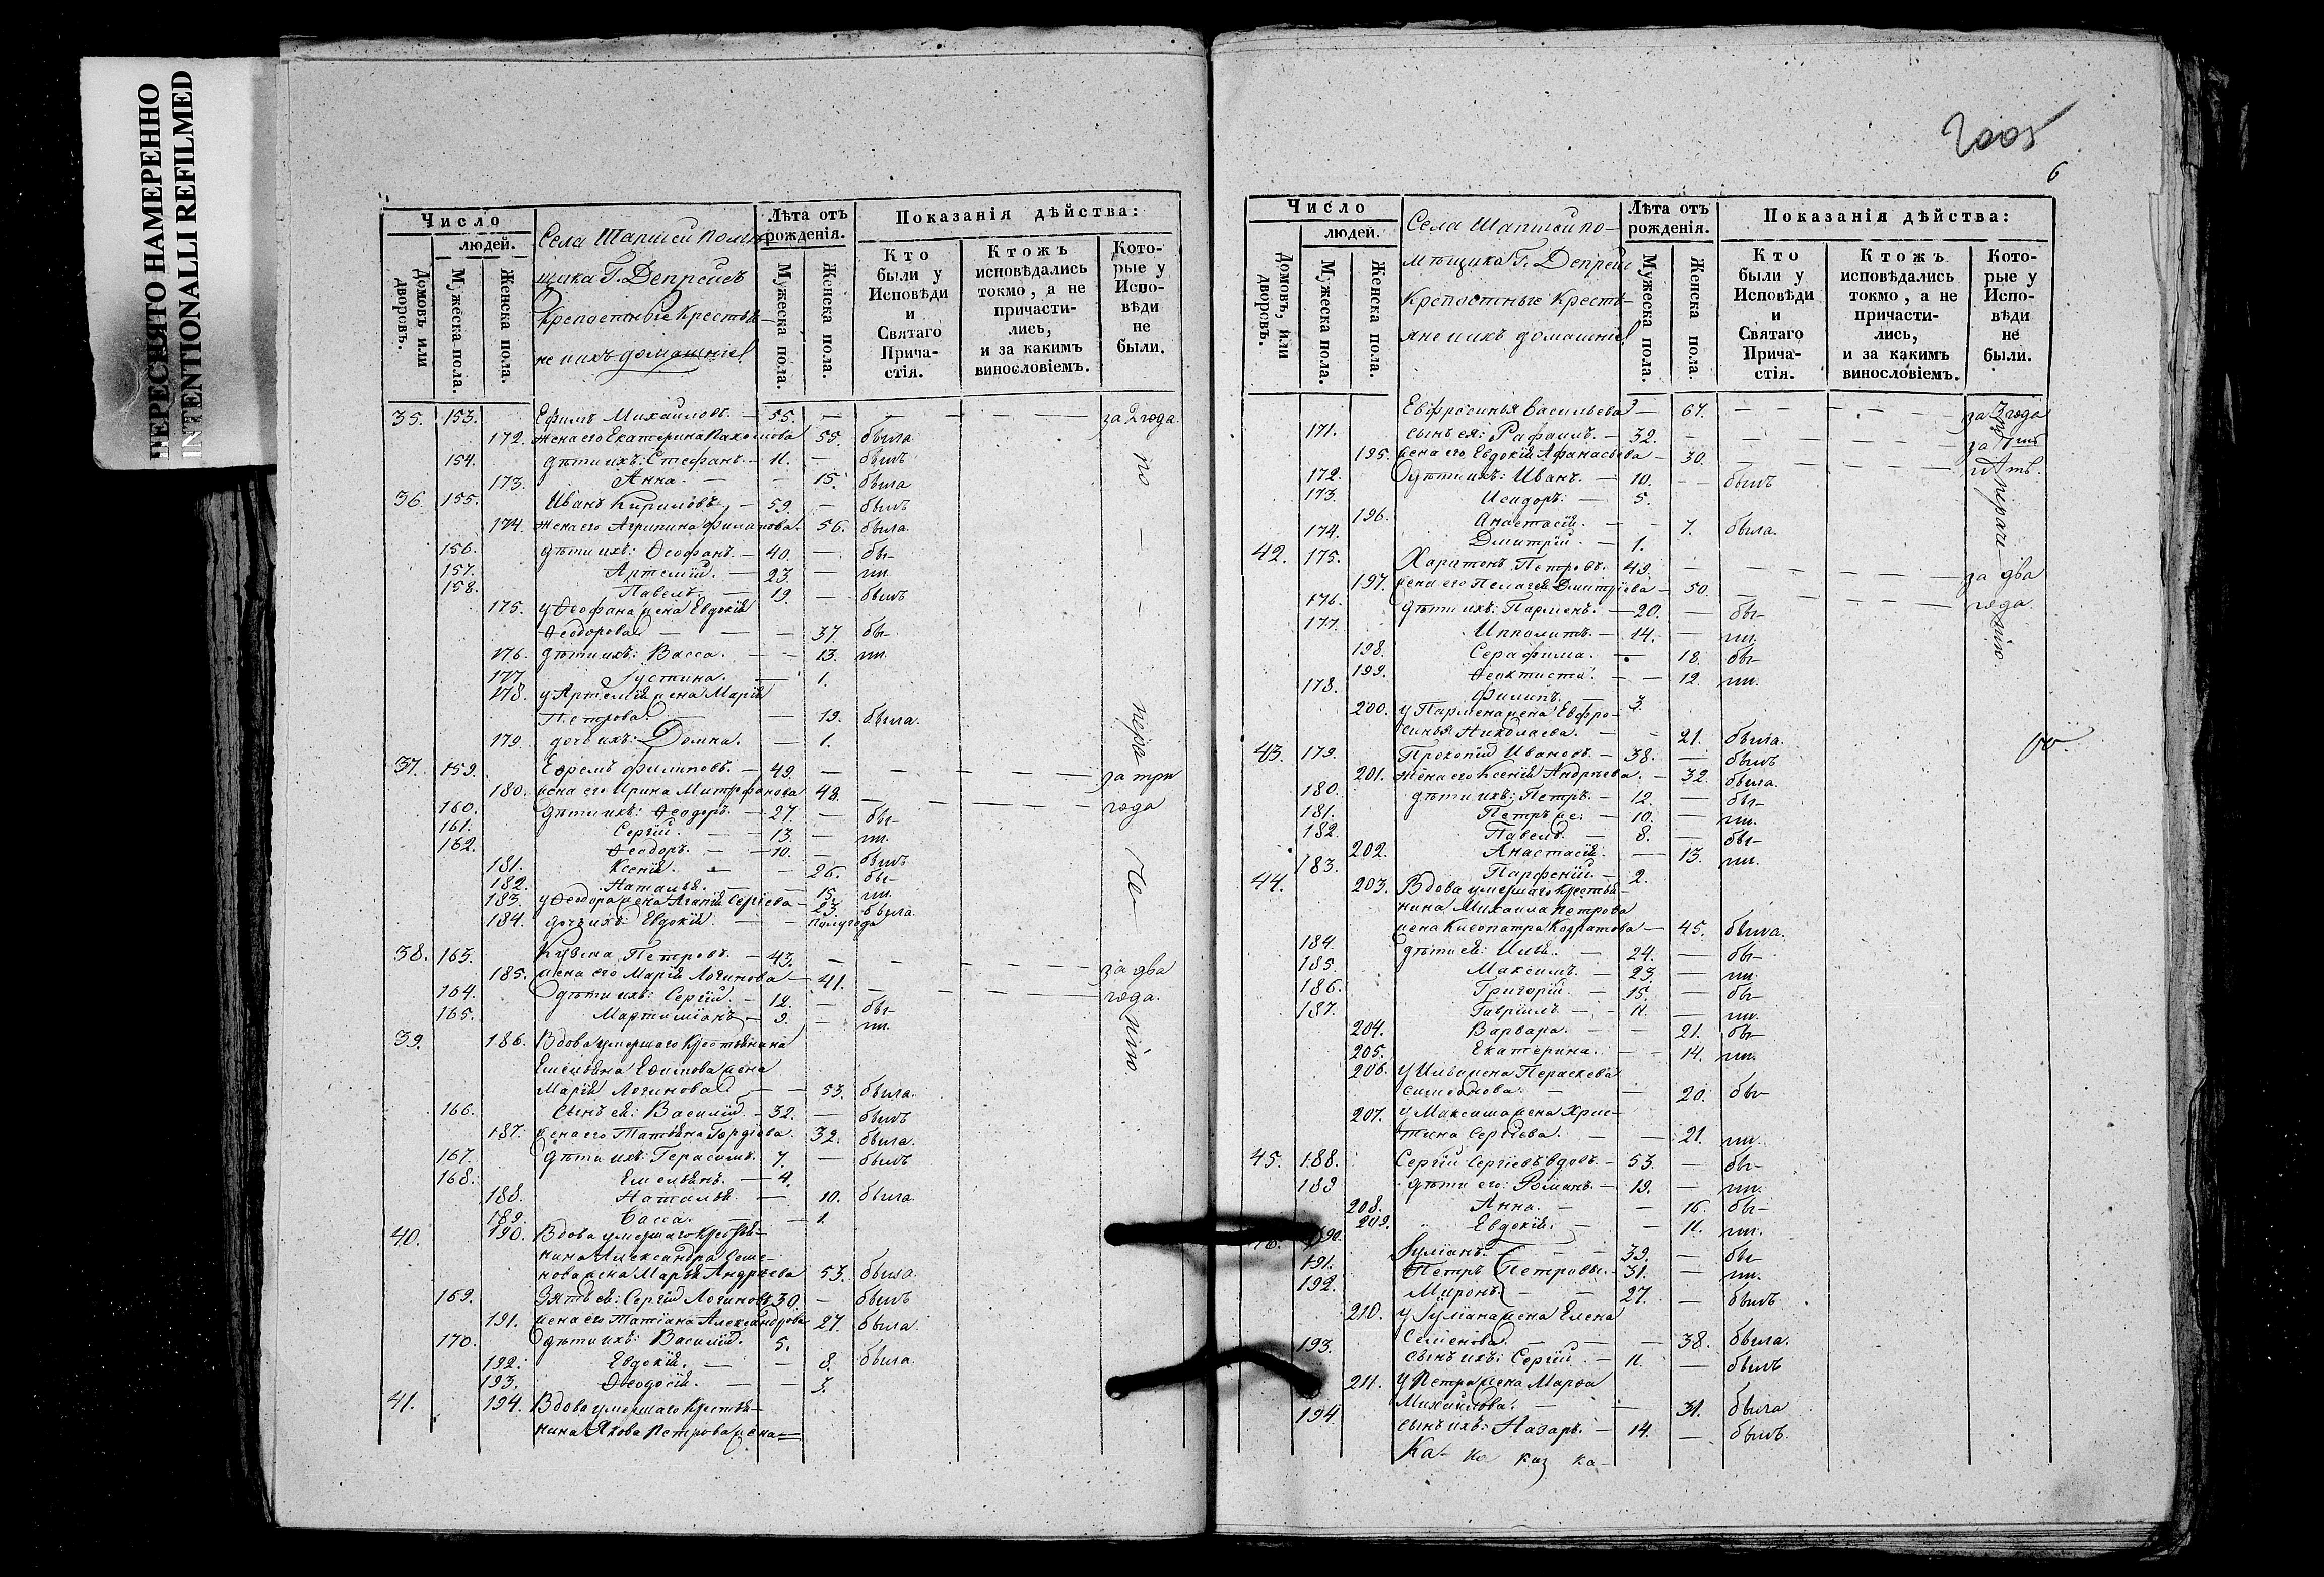 ПЕРЕСНЯТО НАМЕРЕННО
INTENTIONALLI REFILMED
Число
людей.
Домовъ или дворовъ.
Мужеска пола.
Женска пола.
Села
щика Г. Депрейсъ
Крепостные Крестья-
не и ихъ домашние
Лѣта отъ рожденія.
Мужеска пола.
Женска пола.
Показанія дѣйства:
Кто были у Исповѣди и Святаго Прича-стія.
Ктожъ исповѣдались токмо, а не причасти-лись, и за какимъ винословіемъ.
Кото-рые у Испо-вѣди не были.
35. 153. Ефимъ Михайловъ. — 55. — — — — за 2 года.
172. жена его Екатерина Пахомова 55. была
154. дѣти ихъ: Стефанъ. — 11. — былъ
173. Анна. — — 15. была
36. 155. Иванъ Кириловъ. — 59. — былъ
174. жена его Агрипина Филипова. 56. была.
156. дѣти ихъ: Ѳеофанъ. — 40. — бы-
157. Артемій. — 23. — ли.
158. Павелъ. — 19. — былъ
175. у Ѳеофана жена Евдокія
Ѳеодорова — — — 37. бы-
176. дѣти ихъ: Васса. — — 13. ли.
177. Іустина. — 1.
178. у Артемія жена Марія
Петрова. — — 19. была.
179. дочь ихъ: Домна. — 1.
37. 159. Ефремъ Филиповъ. — 49. — — — — за три
180. жена его Ирина Митрофанова 48. — — — года
160. дѣти ихъ: Ѳеодоръ. — 27. — бы-
161. Сергій. — 13. — ли.
162. Ѳеодоръ. — 10. — былъ
181. Ксенія. — — 26. бы-
182. Наталья. — — 15. ли.
183. у Ѳеодора жена Агапія Сергіева — 23. была
184. дочь ихъ: Евдокія. — — полугода
38. 163. Кузма Петровъ. — 43. — — — — за два
185. жена его Марія Логинова — 41. — — — года.
164. дѣти ихъ: Сергій. — 12. — бы-
165. Мартиміанъ — 9. — ли.
39. 186. Вдова умершаго Крестьянина
Емельяна Ефимова жена
Марія Логинова — — 53. была.
166. сынъ ея: Василій. — 32. — былъ
187. жена его Татьяна Гордіева. 32. была.
167. дѣти ихъ: Герасимъ. 7. — былъ
168. Емельянъ. — 4.
188. Наталья. — 10. была
189. Васса. — — 1.
40. 190. Вдова умершаго Крестья-
нина Александра Семе-
нова жена Марья Андреева 53. была.
169. Зять ея: Сергій Логиновъ 30. — былъ
191. жена его Татіана Александрова 27. была.
170. дѣти ихъ: Василій. 5.
192. Евдокія. — — 8. была.
193. Ѳеодосія. — — 3.
41. 194. Вдова умершаго Крестья-
нина Якова Петрова жена
2005
6
Число
людей.
Домовъ, или дворовъ.
Мужеска пола.
Женска пола.
Села
мѣщика Г. Депрейс
Крепостные Кресть-
яне и ихъ домашние
Лѣта отъ рожденія.
Мужеска пола.
Женска пола.
Показанія дѣйства:
Кто были у Исповѣди и Святаго Прича-стія.
Ктожъ исповѣдались токмо, а не причасти-лись, и за какимъ винословіемъ.
Кото-рые у Испо-вѣди не были.
Евфросинья Васильева — 67. — — — за 2 года
171. сынъ ея: Рафаилъ. — 32. — — — за
195. жена его Евдокія Афанасьева — 30. — — —
172. дѣти ихъ: Иванъ. — 10. — — былъ
173. Исидоръ. — 5.
196. Анастасія. — — 7. была.
174. Дмитрій. — 1.
42. 175. Харитонъ Петровъ. 49. — — — за два
197. жена его Пелагея Дмитріева — 50. — — — года.
176. дѣти ихъ: Парменъ. — 20. — бы-
177. Ипполитъ. — 14. — ли.
198. Серафима. — 18. бы-
199. Ѳеоктиста. — — 12. ли.
178. Филипъ. — 3.
200. у Пармена жена Евфро-
синья Николаева. — — 21. была.
43. 179. Прокопій Ивановъ. — 38. — былъ
201. жена его Ксенія Андрѣева. — 32. была.
180. дѣти ихъ: Петръ. — 12. — бы-
181. Петръ же. — 10. — ли.
182. Павелъ. — 8. — бы-
202. Анастасія. — 13. ли.
183. Парфеній. — 2.
44. 203. Вдова умершаго Крестья
нина Михаила Петрова
жена Клеопатра Кодратова — 45. была.
184. дѣти ея: Илья. — 24. — бы-
185. Максимъ. — 23. — ли.
186. Григорій. — 15. — бы-
187. Гавріилъ. — 11. — ли.
204. Варвара. — — 21. бы-
205. Екатерина. — — 14. ли.
206. у Ильи жена Параскева
Симеонова. — — 20. бы-
207. у Максима жена Хрис-
тина Сергіева. — — 21. ли.
45. 188. Сергій Сергіевъ вдовъ. — 53. — бы-
189 дѣти его: Романъ. — 19. — ли.
208. Анна. — — 16. бы-
209. Евдокія. — — 11. ли.
190. Іуліанъ. — — 39. — бы-
191. Петръ Петровы. — 31. — ли.
192. Миронъ. — — 27. — былъ
210. у Іуліана жена Елена
Семенова. — — — 38. была.
193. сынъ ихъ: Сергій. — 11. — былъ
211. у Петра жена Марѳа
Михайлова. — — 31. была
194. сынъ ихъ: Назаръ. — 14. — былъ.